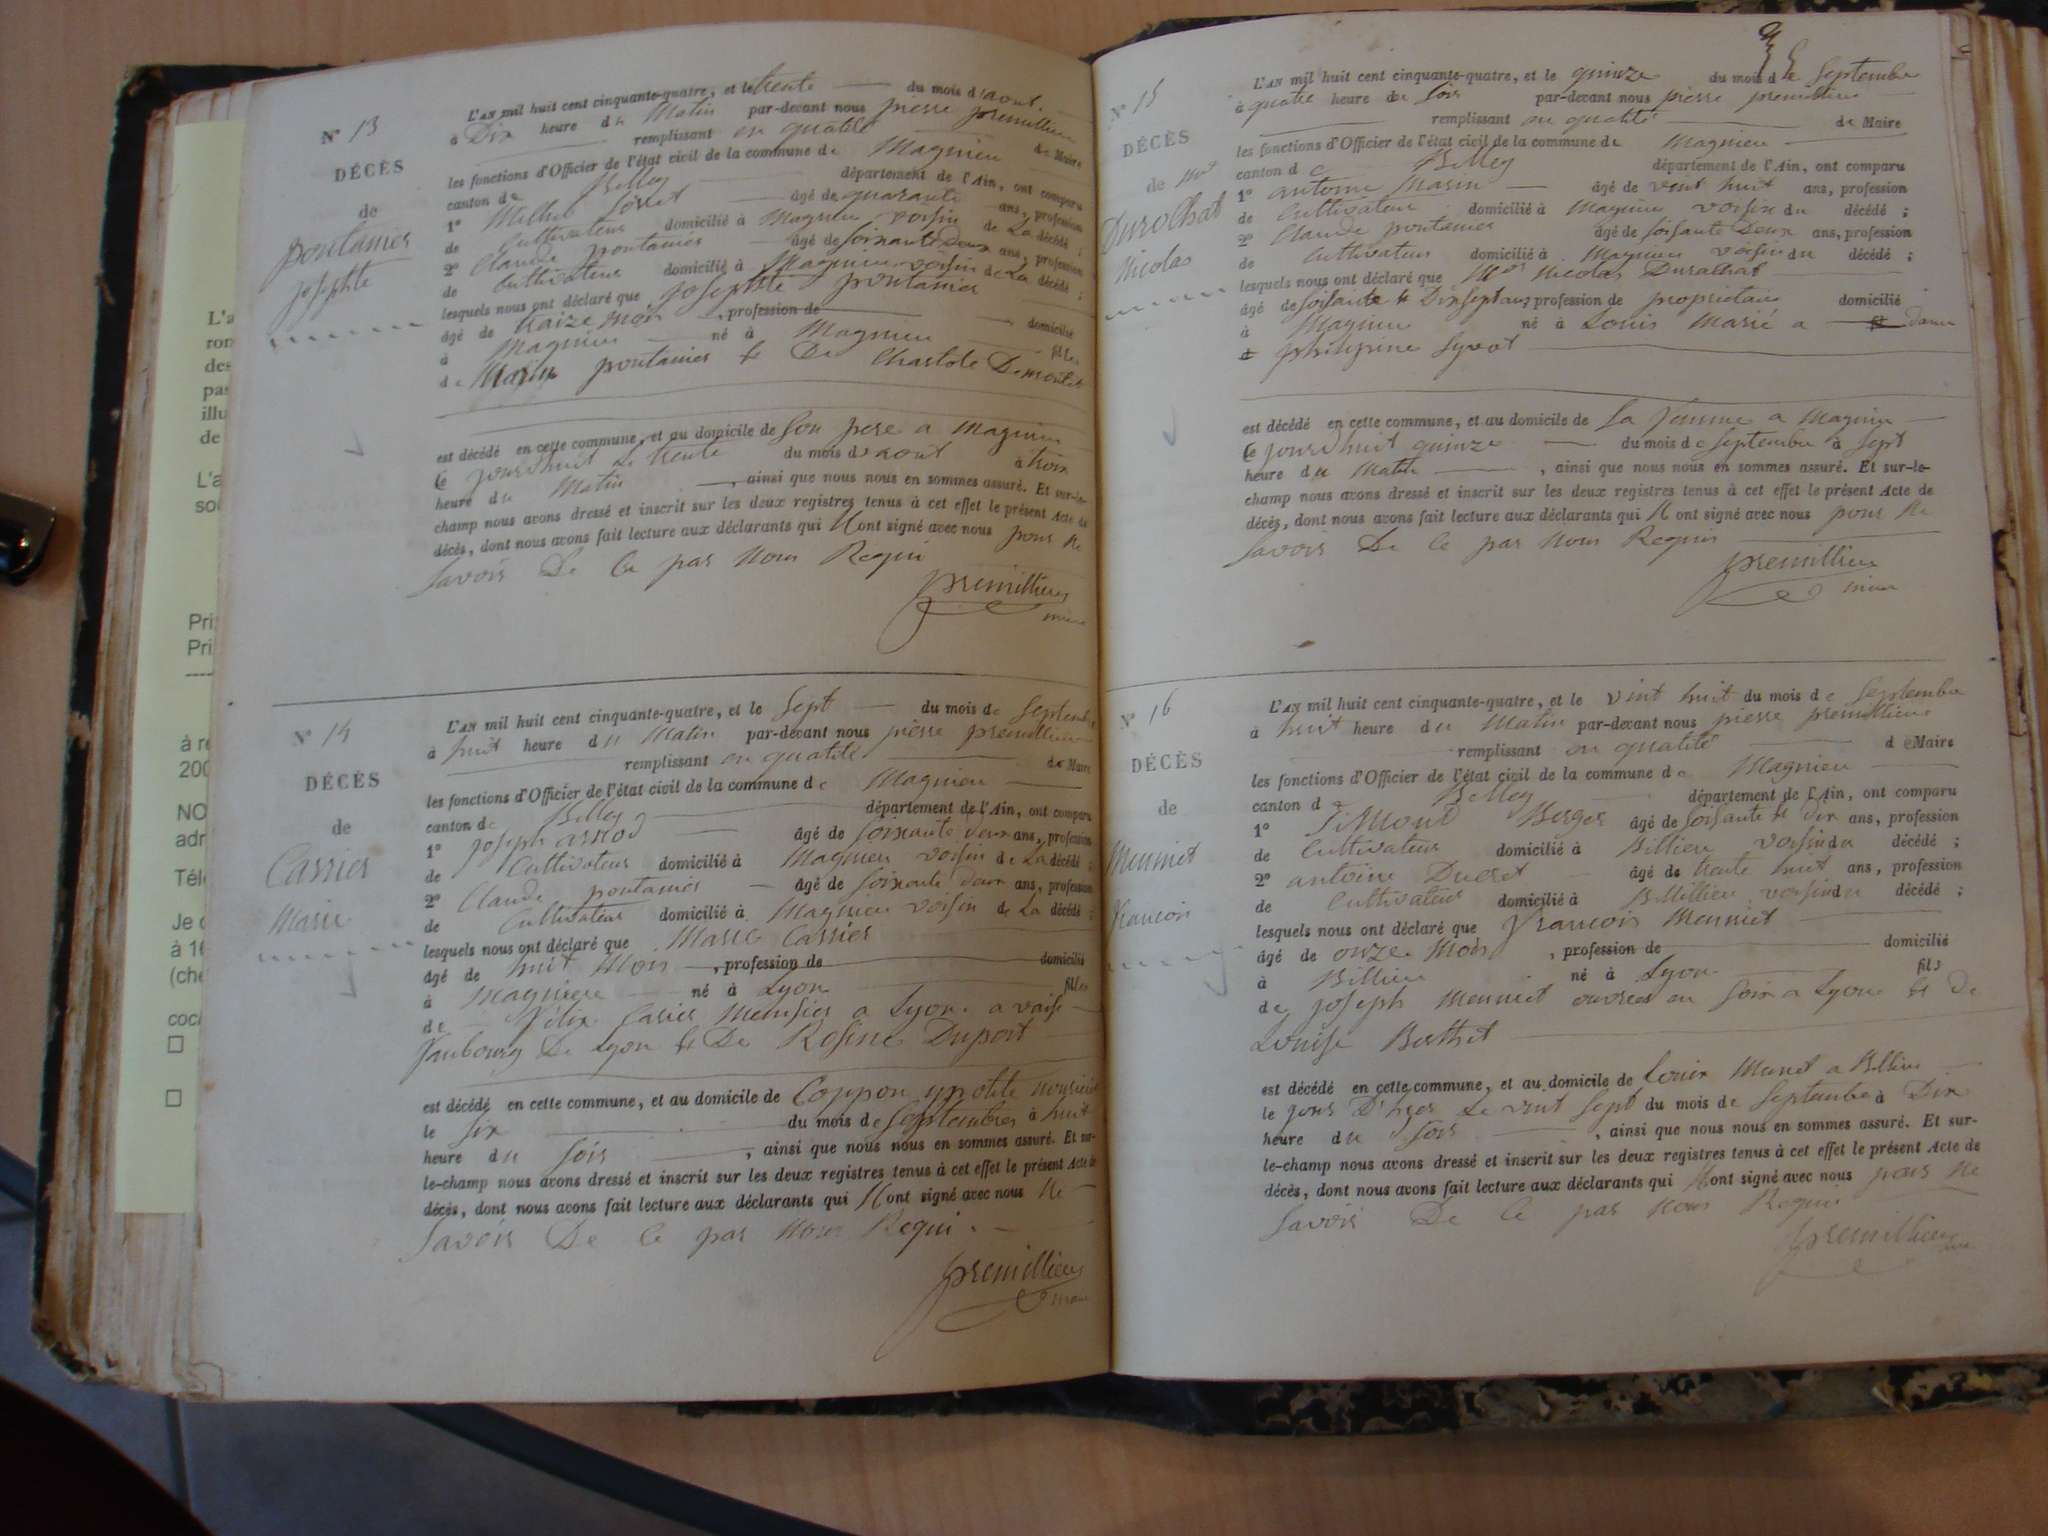 N° 13
DÉCÈS
de
pontanier
josephte
L'AN mil huit cent cinquante-quatre, et le trente du mois d'aout
à Dix heure du Matin par-devant nous pierre premillieu
remplissant en qualité de Maire
les fonctions d'Officier de l'état civil de la commune de Magnieu
canton de Belley département de l'Ain, ont comparu
1° âgé de quarante ans, profession
de Cultivateur domicilié à Magnieu voisin de La décédé ;
2° Claude pontanier âgé de soixante Deux ans, profession
de Cultivateur domicilié à Magnieu voisin de La décédé ;
lesquels nous ont déclaré que josephte pontanier
âgé de traize mois , profession de domicilié
à Magnieu né à Magnieu fille
de pontanier et De
est décédé en cette commune, et au domicile de Son pere a Magnieu
le jourdhuit Le trente du mois d'aout à trois
heure du Matin , ainsi que nous nous en sommes assuré. Et sur-le-
champ nous avons dressé et inscrit sur les deux registres tenus à cet effet le présent Acte de
décès, dont nous avons fait lecture aux déclarants qui N ont signé avec nous pour ne
Savoir De Ce par Nous Requi
premillieu
maire
N° 14
DÉCÈS
de
Carrier
Marie
L'AN mil huit cent cinquante-quatre, et le Sept du mois de Septembre
à huit heure du Matin par-devant nous pierre premillieu
remplissant en qualité de Maire
les fonctions d'Officier de l'état civil de la commune de Magnieu
canton de Belley département de l'Ain, ont comparu
1° joseph arnod âgé de soixante deux ans, profession
de Cultivateur domicilié à Magnieu voisin de La décédé ;
2° Claude pontanier âgé de Soixante deux ans, profession
de Cultivateur domicilié à Magnieu voisin de La décédé ;
lesquels nous ont déclaré que Marie Carrier
âgé de huit Mois , profession de domicilié
à Magnieu né à Lyon fille
de félix Carier Menisier a Lyon a vaise
faubourg De Lyon et De Rosine Duport
est décédé en cette commune, et au domicile de Coppon
le Six du mois de Septembre à huit
heure du Soir , ainsi que nous nous en sommes assuré. Et sur-
le-champ nous avons dressé et inscrit sur les deux registres tenus à cet effet le présent Acte de
décès, dont nous avons fait lecture aux déclarants qui N ont signé avec nous Ne
Savoir De Ce par Nous Requi
premillieu
maire
N° 15
DÉCÈS
de Mr
Durochat
Nicolas
L'AN mil huit cent cinquante-quatre, et le quinze du mois de Septembre
à quatre heure du Soir par-devant nous pierre premillieu
remplissant en qualité de Maire
les fonctions d'Officier de l'état civil de la commune de Magnieu
canton de Belley département de l'Ain, ont comparu
1° antoine Marin âgé de vint huit ans, profession
de Cultivateur domicilié à Magnieu voisin du décédé ;
2° Claude pontanier âgé de soisante Deux ans, profession
de Cultivateur domicilié à Magnieu voisin du décédé ;
lesquels nous ont déclaré que Mr Nicolas Durochat
âgé de soisante et Dix sept ans profession de propriétaire domicilié
à Magnieu né à Louis Marié a dame
philipine
est décédé en cette commune, et au domicile de Sa femme a Magnieu
le jourdhuit quinze du mois de Septembre à Sept
heure du Matin , ainsi que nous nous en sommes assuré. Et sur-le-
champ nous avons dressé et inscrit sur les deux registres tenus à cet effet le présent Acte de
décès, dont nous avons fait lecture aux déclarants qui N ont signé avec nous pour Ne
Savoir De Ce par Nous Requis
premillieu
maire
N° 16
DÉCÈS
de
Meuniet
francois
L'AN mil huit cent cinquante-quatre, et le vint huit du mois de Septembre
à huit heure du Matin par-devant nous pierre premillieu
remplissant en qualité de Maire
les fonctions d'Officier de l'état civil de la commune de Magnieu
canton de Belley département de l'Ain, ont comparu
1° Berger âgé de soisante et dix ans, profession
de Cultivateur domicilié à Billieu voisin du décédé ;
2° antoine Ducret âgé de trente huit ans, profession
de Cultivateur domicilié à Billieu voisin du décédé ;
lesquels nous ont déclaré que francois Meuniet
âgé de onze Mois , profession de domicilié
à Billieu né à Lyon fils
de joseph Meuniet ouvrier en Soie a Lyon et De
Louise Berthet
est décédé en cette commune, et au domicile de Louis a Billieu
le jour D'hier Le vint Sept du mois de Septembre à Dix
heure du Soir , ainsi que nous nous en sommes assuré. Et sur-
le-champ nous avons dressé et inscrit sur les deux registres tenus à cet effet le présent Acte de
décès, dont nous avons fait lecture aux déclarants qui N ont signé avec nous pour Ne
Savoir De Ce par Nous Requi
premillieu